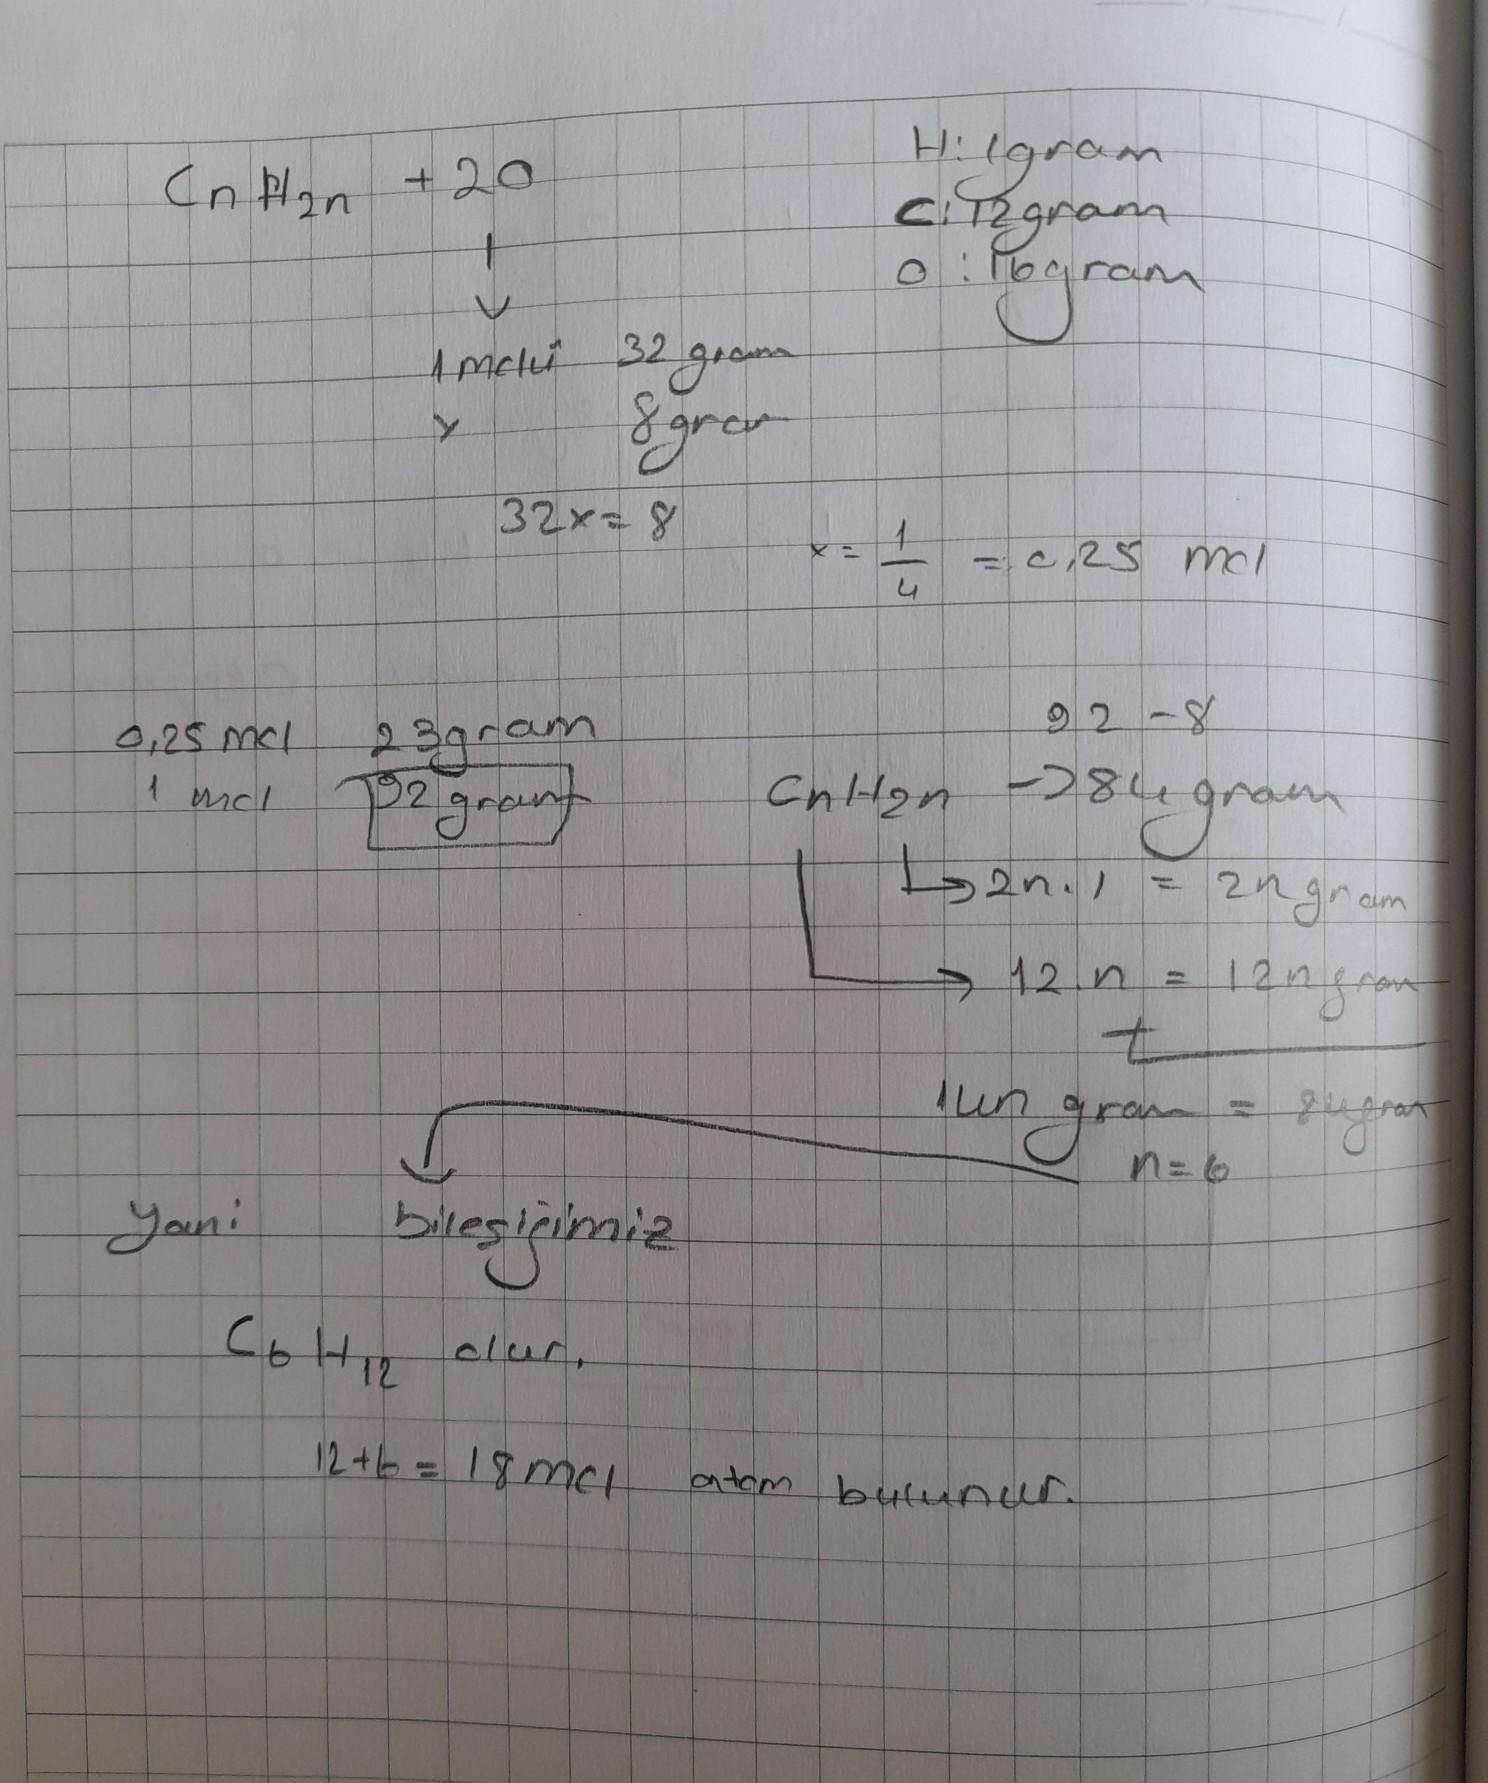 CnH2n + 2O
H: 1gram
C: 12gram
O: 16gram
1 molü 32 gram
x 8gram
32x = 8
x = 1/4 = 0,25 mol
0,25 mol 23gram
1 mol 92 gram
92 - 8
CnH2n -> 84 gram
2n.1 = 2n gram
12.n = 12n gram
+
14n gram = 84gram
n = 6
Yani bileşiğimiz
C6H12 olur.
12+6 = 18 mol atom bulunur.